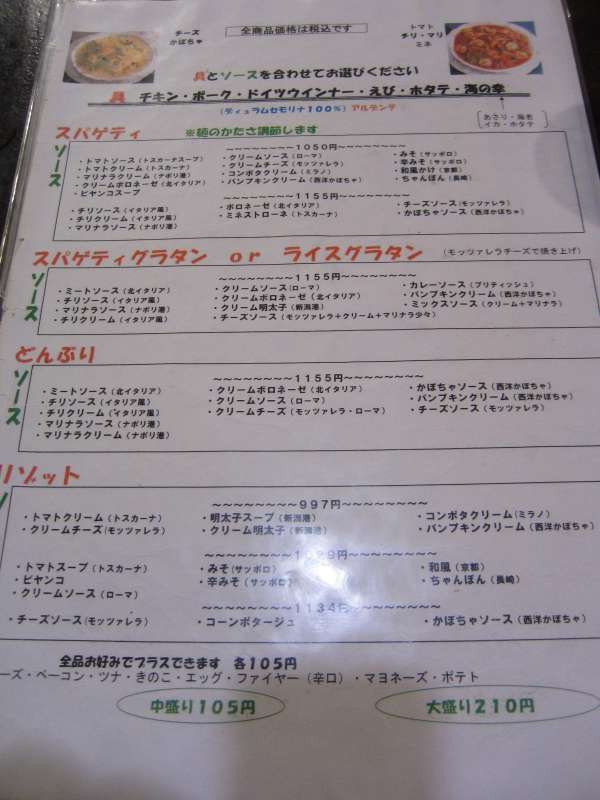 チーズ
かぼちゃ
全商品価格は税込です
トマト
チリ・マリ
ミネ
具とソースを合わせてお選びください
具 チキン・ポーク・ドイツウインナー・えび・ホタテ・海の幸
(ディュラムセモリナ100%) アルデンテ
あさり・海老
イカ・ホタテ
スパゲティ ※麺のかたさ調節します
ソース
～～～～～～～～1050円～～～～～～～～
・トマトソース(トスカーナスープ) ・クリームソース(ローマ) ・みそ(サッポロ)
・トマトクリーム(トスカーナ) ・クリームチーズ(モッツァレラ) ・辛みそ(サッポロ)
・マリナラクリーム(ナポリ港) ・コンポタクリーム(ミラノ) ・和風かけ(京都)
・クリームボロネーゼ(北イタリア) ・パンプキンクリーム(西洋かぼちゃ) ・ちゃんぽん(長崎)
・ビヤンコスープ
～～～～～～～～1155円～～～～～～～～
・チリソース(イタリア風) ・ボロネーゼ(北イタリア) ・チーズソース(モッツァレラ)
・チリクリーム(イタリア風) ・ミネストローネ(トスカーナ) ・かぼちゃソース(西洋かぼちゃ)
・マリナラソース(ナポリ港)
スパゲティグラタン or ライスグラタン (モッツァレラチーズで焼き上げ)
ソース
～～～～～～～～1155円～～～～～～～～
・ミートソース(北イタリア) ・クリームソース(ローマ) ・カレーソース(ブリティッシュ)
・チリソース(イタリア風) ・クリームボロネーゼ(北イタリア) ・パンプキンクリーム(西洋かぼちゃ)
・マリナラソース(ナポリ港) ・クリーム明太子(新潟港) ・ミックスソース(クリーム+マリナラ)
・チリクリーム(イタリア風) ・チーズソース(モッツァレラ+クリーム+マリナラ少々)
どんぶり
ソース
～～～～～～～～1155円～～～～～～～～
・ミートソース(北イタリア) ・クリームボロネーゼ(北イタリア) ・かぼちゃソース(西洋かぼちゃ)
・チリソース(イタリア風) ・クリームソース(ローマ) ・パンプキンクリーム(西洋かぼちゃ)
・チリクリーム(イタリア風) ・クリームチーズ(モッツァレラ・ローマ) ・チーズソース(モッツァレラ)
・マリナラソース(ナポリ港)
・マリナラクリーム(ナポリ港)
リゾット
～～～～～～～～997円～～～～～～～～
・トマトクリーム(トスカーナ) ・明太子スープ(新潟港) ・コンポタクリーム(ミラノ)
・クリームチーズ(モッツァレラ) ・クリーム明太子(新潟港) ・パンプキンクリーム(西洋かぼちゃ)
・トマトスープ(トスカーナ) ・みそ(サッポロ) ・和風(京都)
・ビヤンコ ・辛みそ(サッポロ) ・ちゃんぽん(長崎)
・クリームソース(ローマ)
～～～～～～～～1134円～～～～～～～～
・チーズソース(モッツァレラ) ・コーンポタージュ ・かぼちゃソース(西洋かぼちゃ)
全品お好みでプラスできます 各105円
ーズ・ベーコン・ツナ・きのこ・エッグ・ファイヤー(辛口)・マヨネーズ・ポテト
中盛り105円 大盛り210円